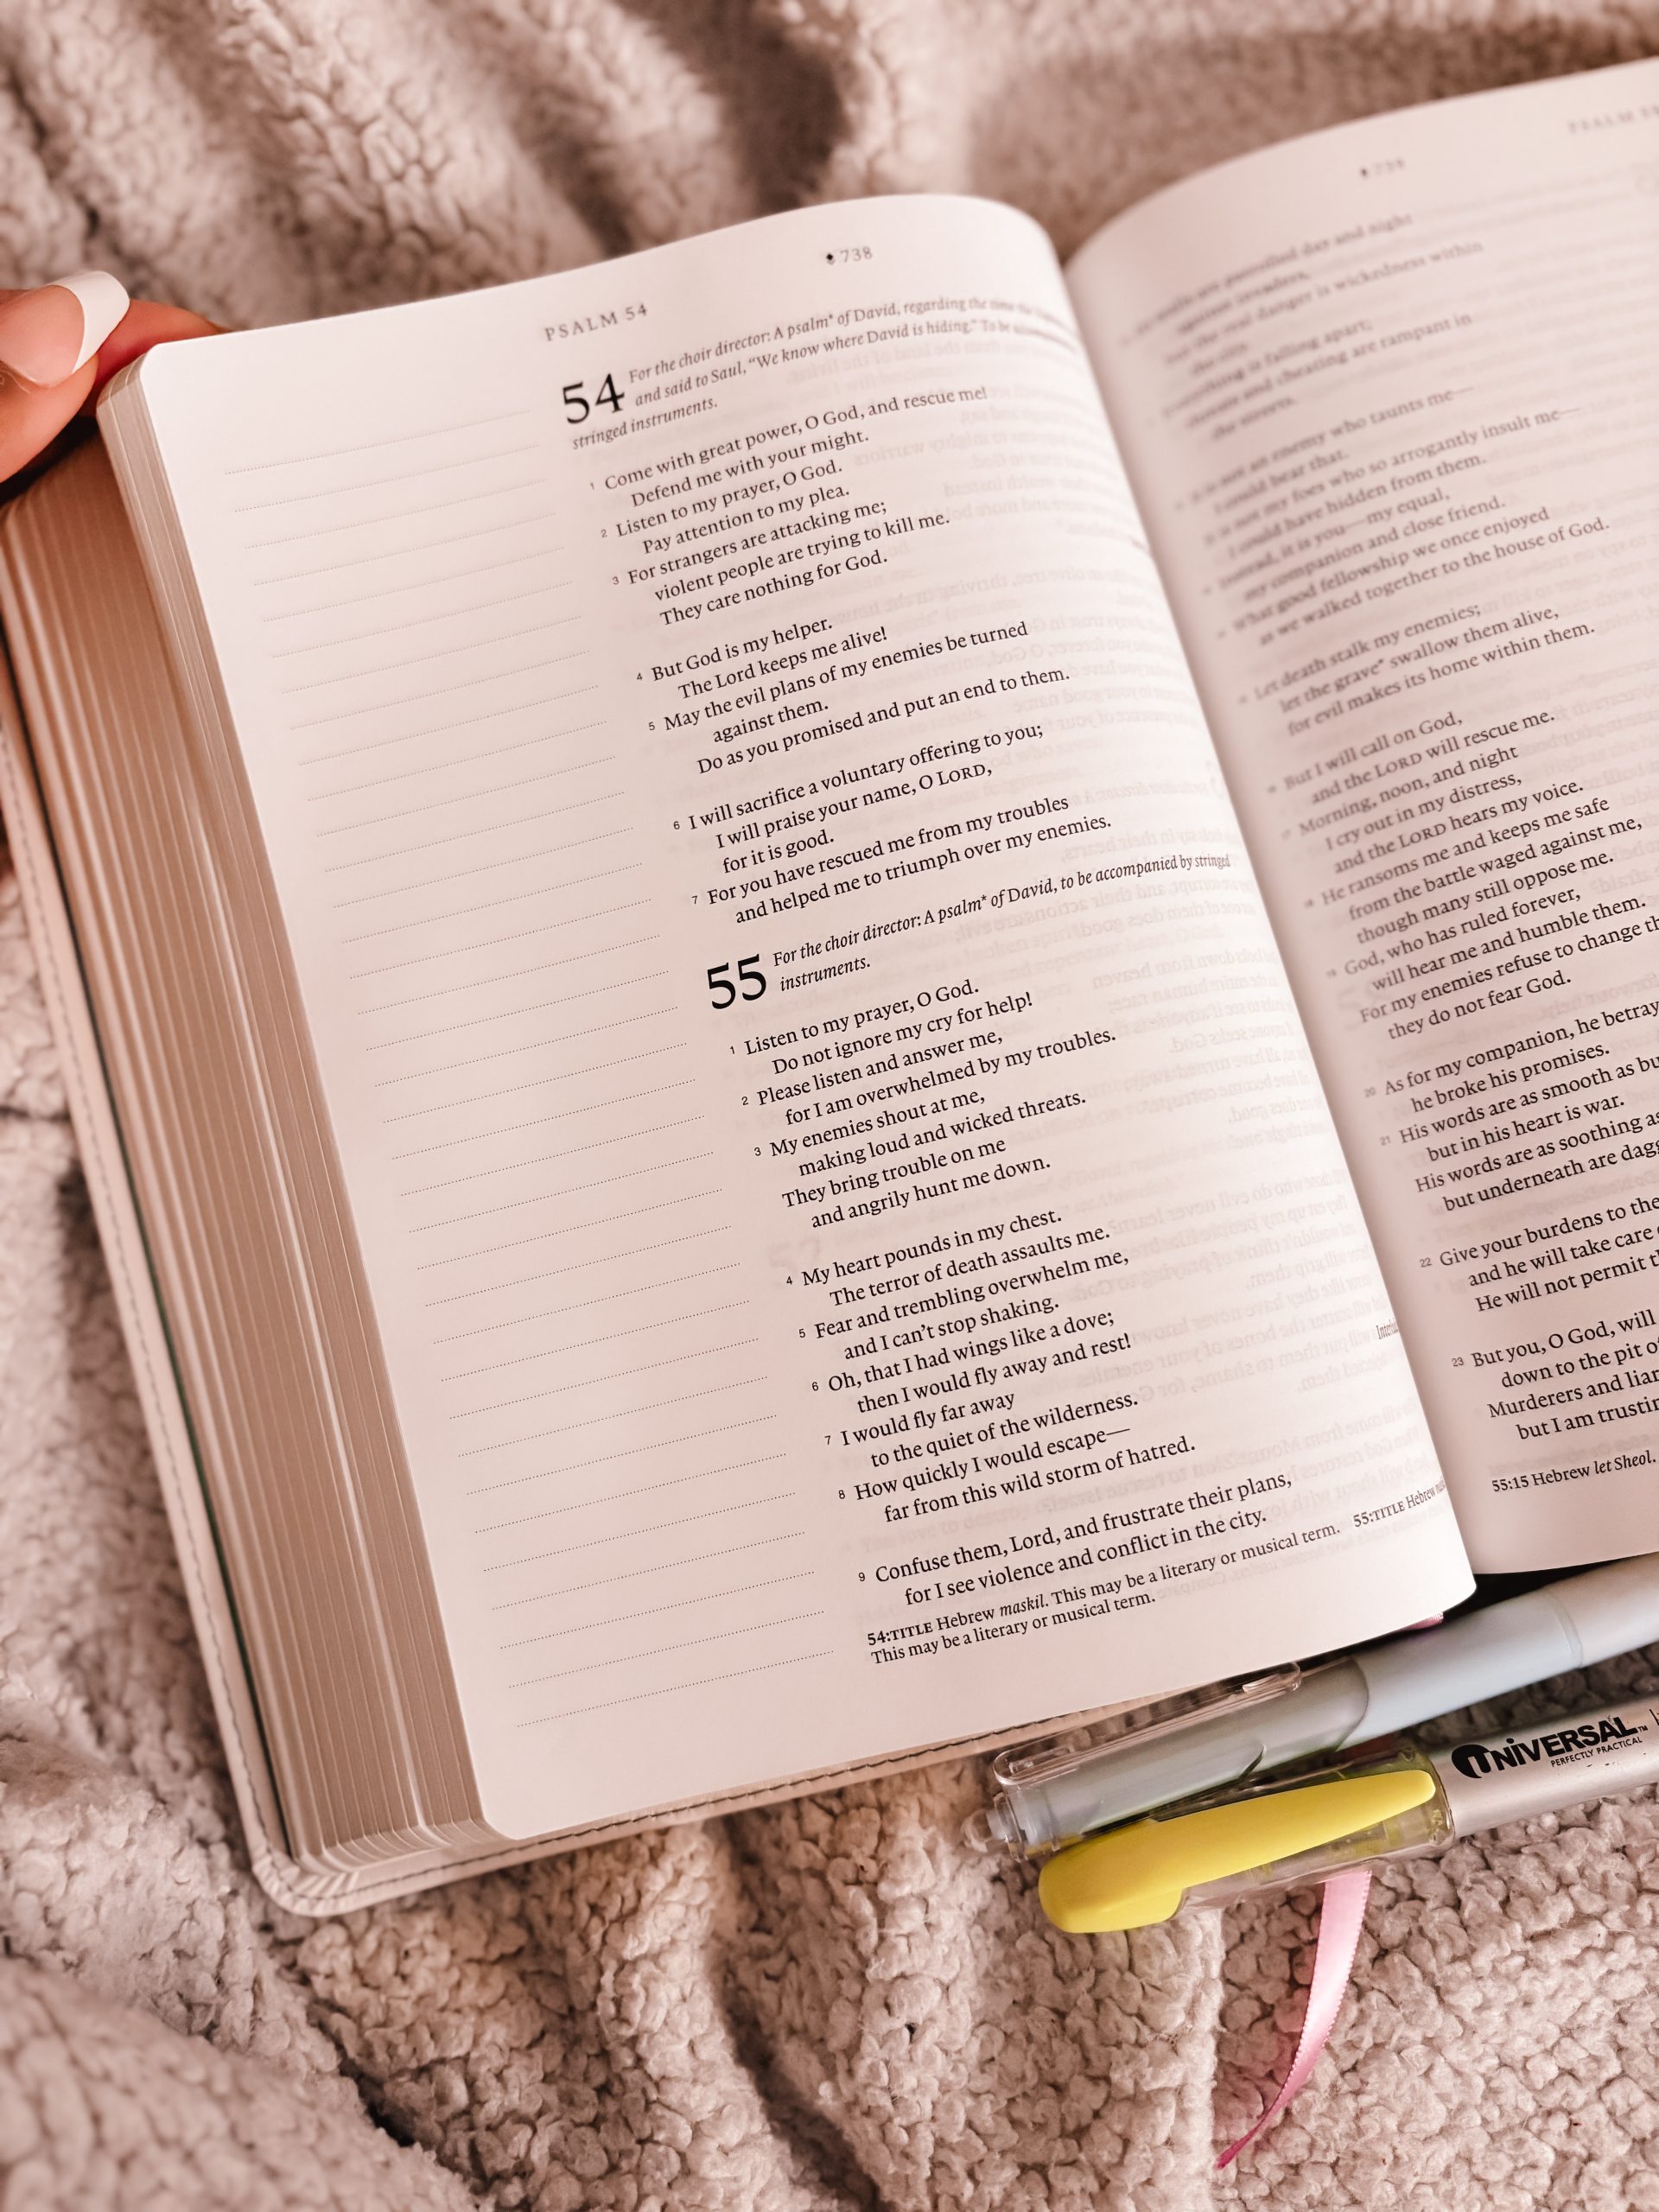 738
PSALM 54
54 For the choir director: A psalm* of David, regarding the time the
and said to Saul, “We know where David is hiding.” To be
stringed instruments.
1 Come with great power, O God, and rescue me!
Defend me with your might.
2 Listen to my prayer, O God.
Pay attention to my plea.
3 For strangers are attacking me;
violent people are trying to kill me.
They care nothing for God.
4 But God is my helper.
The Lord keeps me alive!
5 May the evil plans of my enemies be turned
against them.
Do as you promised and put an end to them.
6 I will sacrifice a voluntary offering to you;
I will praise your name, O LORD,
for it is good.
7 For you have rescued me from my troubles
and helped me to triumph over my enemies.
55 For the choir director: A psalm* of David, to be accompanied by stringed
instruments.
1 Listen to my prayer, O God.
Do not ignore my cry for help!
2 Please listen and answer me,
for I am overwhelmed by my troubles.
3 My enemies shout at me,
making loud and wicked threats.
They bring trouble on me
and angrily hunt me down.
4 My heart pounds in my chest.
The terror of death assaults me.
5 Fear and trembling overwhelm me,
and I can’t stop shaking.
6 Oh, that I had wings like a dove;
then I would fly away and rest!
7 I would fly far away
to the quiet of the wilderness.
8 How quickly I would escape—
far from this wild storm of hatred.
9 Confuse them, Lord, and frustrate their plans,
for I see violence and conflict in the city.
54:TITLE Hebrew maskil. This may be a literary or musical term. 55:TITLE Hebrew
This may be a literary or musical term.
PSALM
patrolled day and night
invaders,
real danger is wickedness within
is falling apart;
and cheating are rampant in
the streets.
an enemy who taunts me—
I could bear that.
not my foes who so arrogantly insult me—
I could have hidden from them.
Instead, it is you—my equal,
my companion and close friend.
What good fellowship we once enjoyed
as we walked together to the house of God.
Let death stalk my enemies;
let the grave* swallow them alive,
for evil makes its home within them.
But I will call on God,
and the LORD will rescue me.
Morning, noon, and night
I cry out in my distress,
and the LORD hears my voice.
He ransoms me and keeps me safe
from the battle waged against me,
though many still oppose me.
God, who has ruled forever,
will hear me and humble them.
For my enemies refuse to change
they do not fear God.
20 As for my companion, he
he broke his promises.
21 His words are as smooth as
but in his heart is war.
His words are as soothing
but underneath are
22 Give your burdens to the
and he will take care
He will not permit
23 But you, O God, will
down to the pit
Murderers and
but I am
55:15 Hebrew let Sheol.
UNIVERSAL™
PERFECTLY PRACTICAL